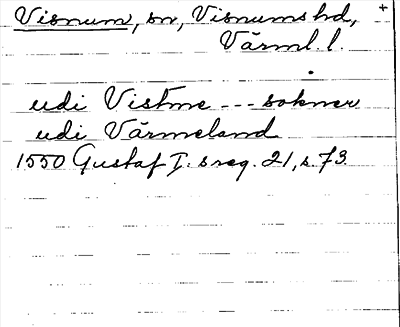 Visnum, sn, Visnums hd, +
Värml. l.
udi Vistme --- sokner
udi Värmeland
1550 Gustaf I:s reg. 21, s. 73